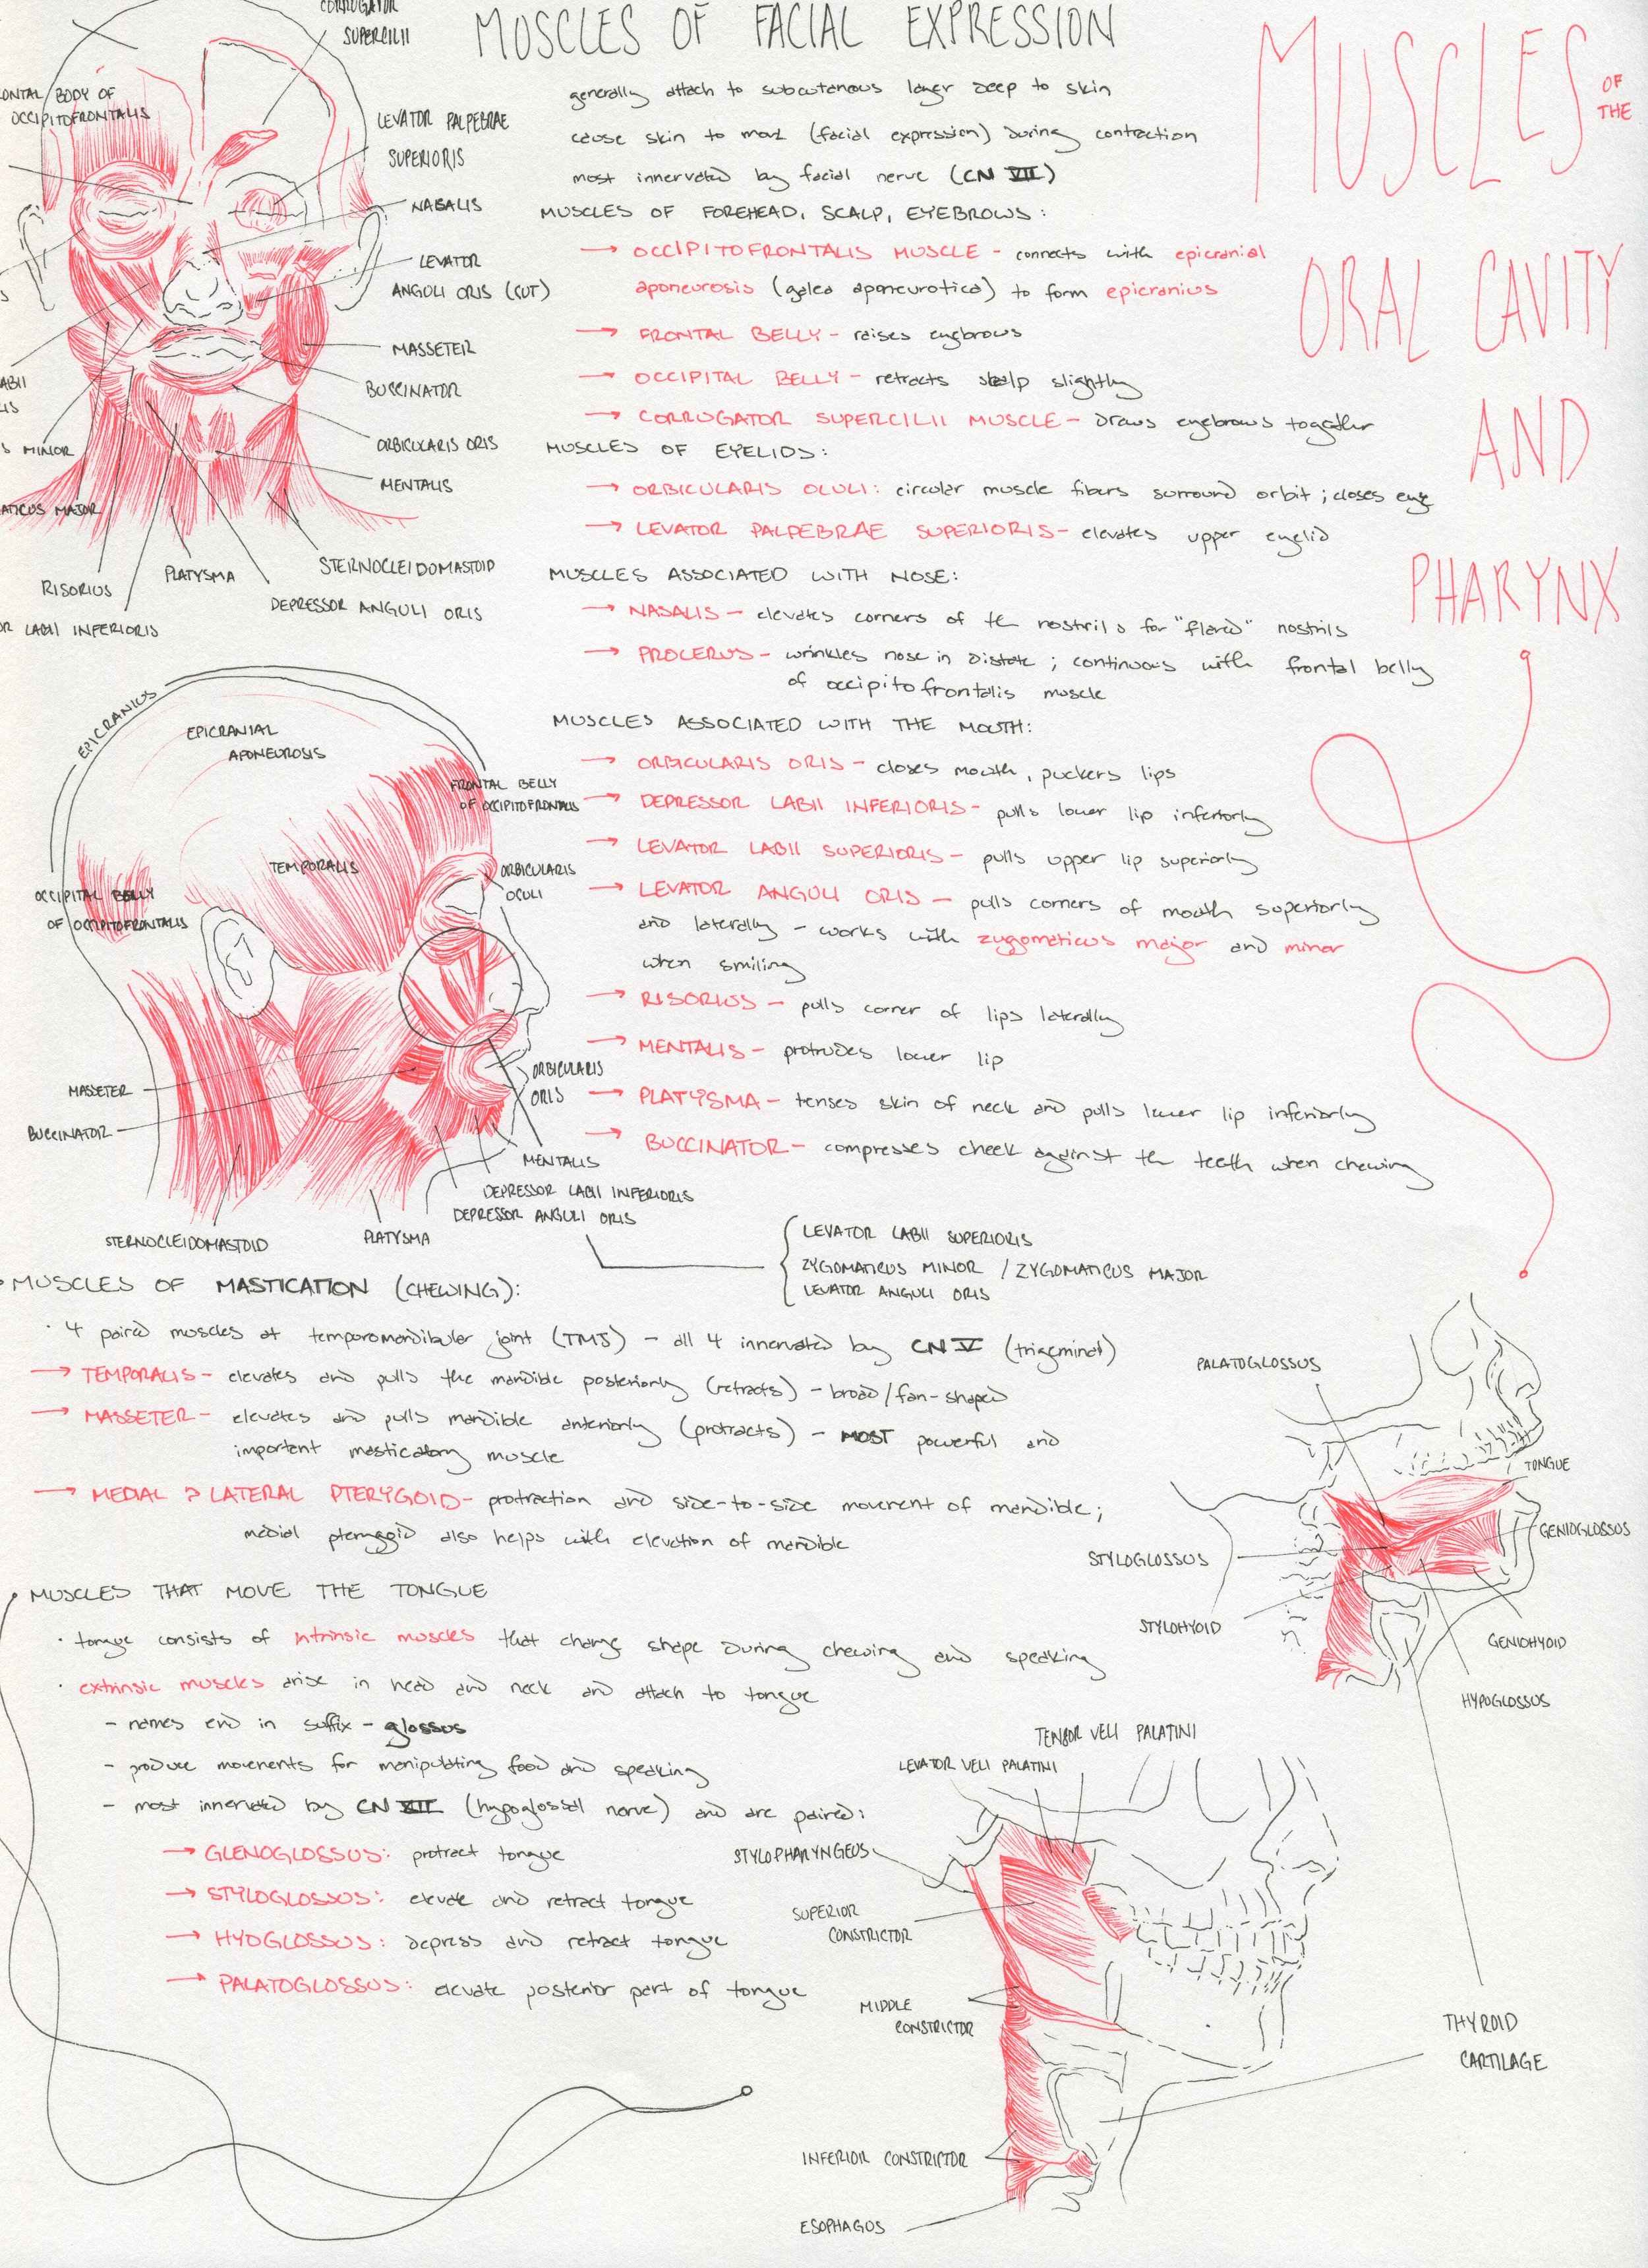 CORRUGATOR
SUPERCILII
ONTAL BODY OF
OCCIPITOFRONTALIS
LEVATOR PALPEBRAE
SUPERIORIS
NASALIS
LEVATOR
ANGULI ORIS (CUT)
MASSETER
BUCCINATOR
ORBICULARIS ORIS
MENTALIS
S
ABII
IS
S MINOR
ATICUS MAJOR
RISORIUS
PLATYSMA
STERNOCLEIDOMASTOID
DEPRESSOR ANGULI ORIS
OR LABII INFERIORIS
MUSCLES OF FACIAL EXPRESSION
generally attach to subcutaneous layer deep to skin
cause skin to move (facial expression) during contraction
most innervated by facial nerve (CN VII)
MUSCLES OF FOREHEAD, SCALP, EYEBROWS:
→ OCCIPITOFRONTALIS MUSCLE - connects with epicranial
aponeurosis (galea aponeurotica) to form epicranius
→ FRONTAL BELLY - raises eyebrows
→ OCCIPITAL BELLY - retracts scalp slightly
→ CORRUGATOR SUPERCILII MUSCLE - draws eyebrows together
MUSCLES OF EYELIDS:
→ ORBICULARIS OCULI: circular muscle fibers surround orbit; closes eye
→ LEVATOR PALPEBRAE SUPERIORIS - elevates upper eyelid
MUSCLES ASSOCIATED WITH NOSE:
→ NASALIS - elevates corners of the nostrils for "flared" nostrils
→ PROCERUS - wrinkles nose in distate; continuous with frontal belly
of occipitofrontalis muscle
MUSCLES ASSOCIATED WITH THE MOUTH:
→ ORBICULARIS ORIS - closes mouth, puckers lips
→ DEPRESSOR LABII INFERIORIS - pulls lower lip inferiorly
→ LEVATOR LABII SUPERIORIS - pulls upper lip superiorly
→ LEVATOR ANGULI ORIS - pulls corners of mouth superiorly
and laterally - works with zygomaticus major and minor
when smiling
→ RISORIUS - pulls corner of lips laterally
→ MENTALIS - protrudes lower lip
→ PLATYSMA - tenses skin of neck and pulls lower lip inferiorly
→ BUCCINATOR - compresses cheek against the teeth when chewing
MUSCLES OF THE
ORAL CAVITY
AND
PHARYNX
EPICRANIUS
EPICRANIAL
APONEUROSIS
FRONTAL BELLY
OF OCCIPITOFRONTALIS
TEMPORALIS
ORBICULARIS
OCULI
OCCIPITAL BELLY
OF OCCIPITOFRONTALIS
ORBICULARIS
ORIS
MASSETER
BUCCINATOR
MENTALIS
DEPRESSOR LABII INFERIORIS
DEPRESSOR ANGULI ORIS
PLATYSMA
STERNOCLEIDOMASTOID
LEVATOR LABII SUPERIORIS
ZYGOMATICUS MINOR / ZYGOMATICUS MAJOR
LEVATOR ANGULI ORIS
MUSCLES OF MASTICATION (CHEWING):
· 4 paired muscles at temporomandibular joint (TMJ) - all 4 innervated by CN V (trigeminal)
→ TEMPORALIS - elevates and pulls the mandible posteriorly (retracts) - broad/fan-shaped
→ MASSETER - elevates and pulls mandible anteriorly (protracts) - MOST powerful and
important masticatory muscle
→ MEDIAL & LATERAL PTERYGOID - protraction and side-to-side movement of mandible;
medial pterygoid also helps with elevation of mandible
MUSCLES THAT MOVE THE TONGUE
· tongue consists of intrinsic muscles that change shape during chewing and speaking
· extrinsic muscles arise in head and neck and attach to tongue
- names end in suffix - glossus
- produce movements for manipulating food and speaking
- most innervated by CN XII (hypoglossal nerve) and are paired:
→ GLENOGLOSSUS: protract tongue
→ STYLOGLOSSUS: elevate and retract tongue
→ HYOGLOSSUS: depress and retract tongue
→ PALATOGLOSSUS: elevate posterior part of tongue
PALATOGLOSSUS
TONGUE
GENIOGLOSSUS
STYLOGLOSSUS
STYLOHYOID
GENIOHYOID
HYPOGLOSSUS
TENSOR VELI PALATINI
LEVATOR VELI PALATINI
STYLOPHARYNGEUS
SUPERIOR
CONSTRICTOR
MIDDLE
CONSTRICTOR
THYROID
CARTILAGE
INFERIOR CONSTRICTOR
ESOPHAGUS